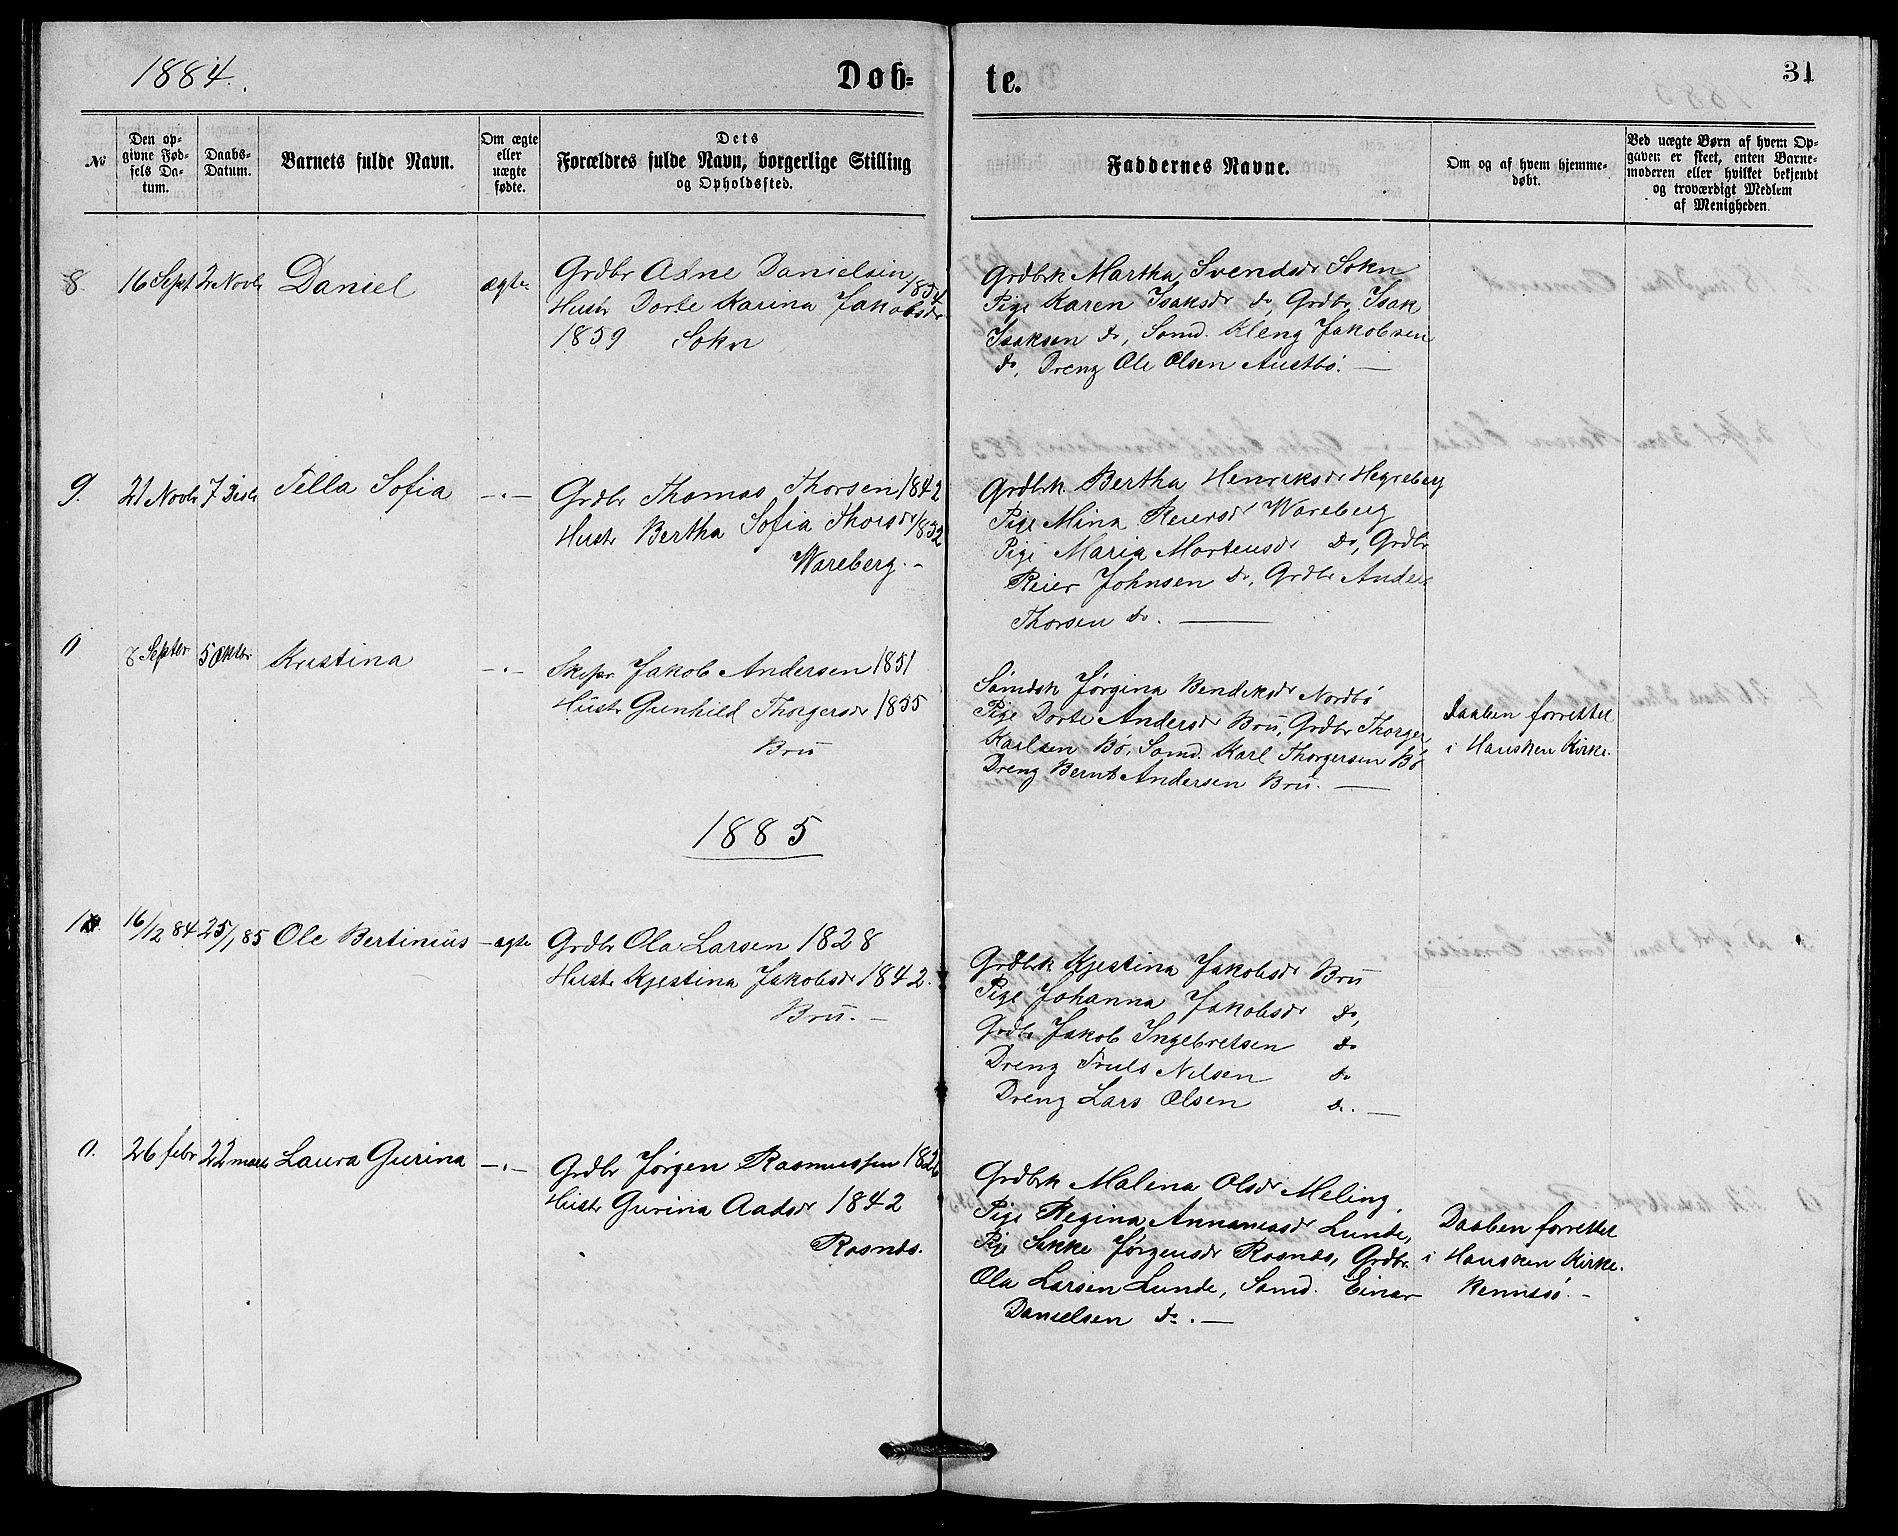 1884.
Døb-
te.
31
№
Den op-
givne Fød-
sels Da-
tum.
Daabs-
Datum.
Barnets fulde Navn.
Om ægte
eller
uægte
fødte.
Dets
Forældres fulde Navn, borgerlige Stilling
og Opholdssted.
Faddernes Navne.
Om og af hvem hjemme-
døbt.
Ved uægte Børn af hvem Op-
gaven er skeet, enten Barne-
moderen eller hvilket bekjendt
og troværdigt Medlem
af Menigheden.
8. 16 Sept 2 Novb Daniel ægte
Grdbr Adne Danielsen 1854
Hustr Dorte Karina Jakobsdr
1859 Sokn
Grdbrk Martha Svendsdr Sokn
Pige Karen Isaksdr do, Grdbr Isak
Isaksen do, Somd. Kleng Jakobsen
do, Dreng Ole Olsen Austbø. —
9. 21 Novb 7 Desb Tella Sofia —"—
Grdbr Thomas Thorsen 1842
Hustr Bertha Sofia Thorsdr 1832
Wareberg. -
Grdbrk. Bertha Henriksdr Hegreberg
Pige Mina Reiersdr Wareberg
Pige Maria Mortensdr do, Grdbr
Reier Johnsen do, Grdbr Anders
Thorsen do. —
0 8 Septbr 5 Oktbr Kristina —"—
Skipr Jakob Andersen 1851
Hustr Gunhild Thorgersdr 1855
Bru
Sömdsk Jørgina Bendiksdr Nordbø
Pige Dorte Andersdr Bru, Grdbr Thorger
Karlsen Bø, Somd. Karl Thorgersen Bø
Dreng Bernt Andersen Bru. —
Daaben forrettet
i Hausken Kirke.
1885
16/12 84 25/1 85 Ole Bertinius — ægte
Grdbr Ola Larsen 1828
Hustr Kjestina Jakobsdr 1842.
Bru. —
Grdbrk Kjestina Jakobsdr Bru
Pige Johanna Jakobsdr do,
Grdbr Jakob Ingebretsen do
Dreng Truls Nilsen do
Dreng Lars Olsen do. —
0. 26 febr 22 marts Laura Gurina —"—
Grdbr Jørgen Rasmussen 1826
Hustr Gurina Aadsdr 1842
Rosnæs.
Grdbrk Malena Olsdr Meling,
Pige Regina Annaniasdr Lunde,
Pige Sikke Jørgensdr Rosnæs, Grdbr.
Ola Larsen Lunde, Somd. Einar
Danielsen do. —
Daaben forrettet
i Hausken Kirke.
Rennesø. -